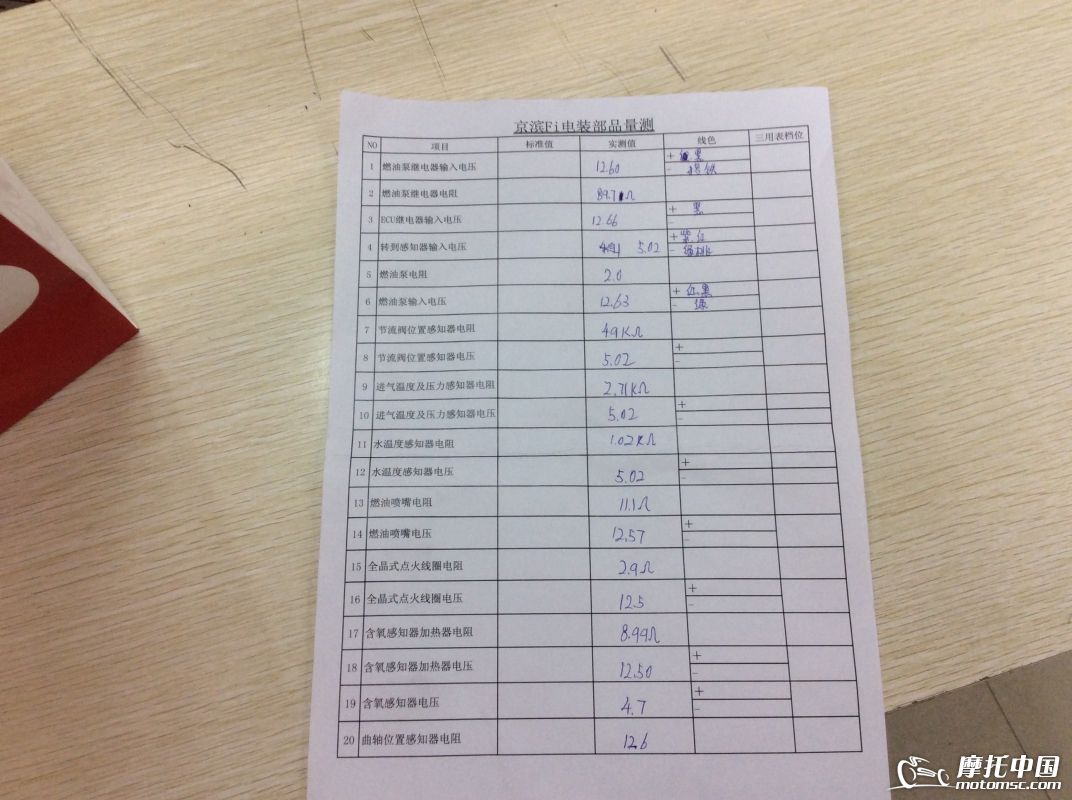 京滨Fi电装部品量测
NO 项目 标准值 实测值 线色 三用表档位
1 燃油泵继电器输入电压 12.60 + 黑 -
2 燃油泵继电器电阻 89.7 Ω
3 ECU继电器输入电压 12.66 + 黑 -
4 转到感知器输入电压 5.02 + 紫红 -
5 燃油泵电阻 2.0
6 燃油泵输入电压 12.63 + 红黑 - 绿
7 节流阀位置感知器电阻 4.9KΩ
8 节流阀位置感知器电压 5.02 + -
9 进气温度及压力感知器电阻 2.71KΩ
10 进气温度及压力感知器电压 5.02 + -
11 水温度感知器电阻 1.02KΩ
12 水温度感知器电压 5.02 + -
13 燃油喷嘴电阻 11.1Ω
14 燃油喷嘴电压 12.57 + -
15 全晶式点火线圈电阻 2.9Ω
16 全晶式点火线圈电压 12.5 + -
17 含氧感知器加热器电阻 8.99Ω
18 含氧感知器加热器电压 12.50 + -
19 含氧感知器电压 4.7 + -
20 曲轴位置感知器电阻 12.6
摩托中国
motomsc.com